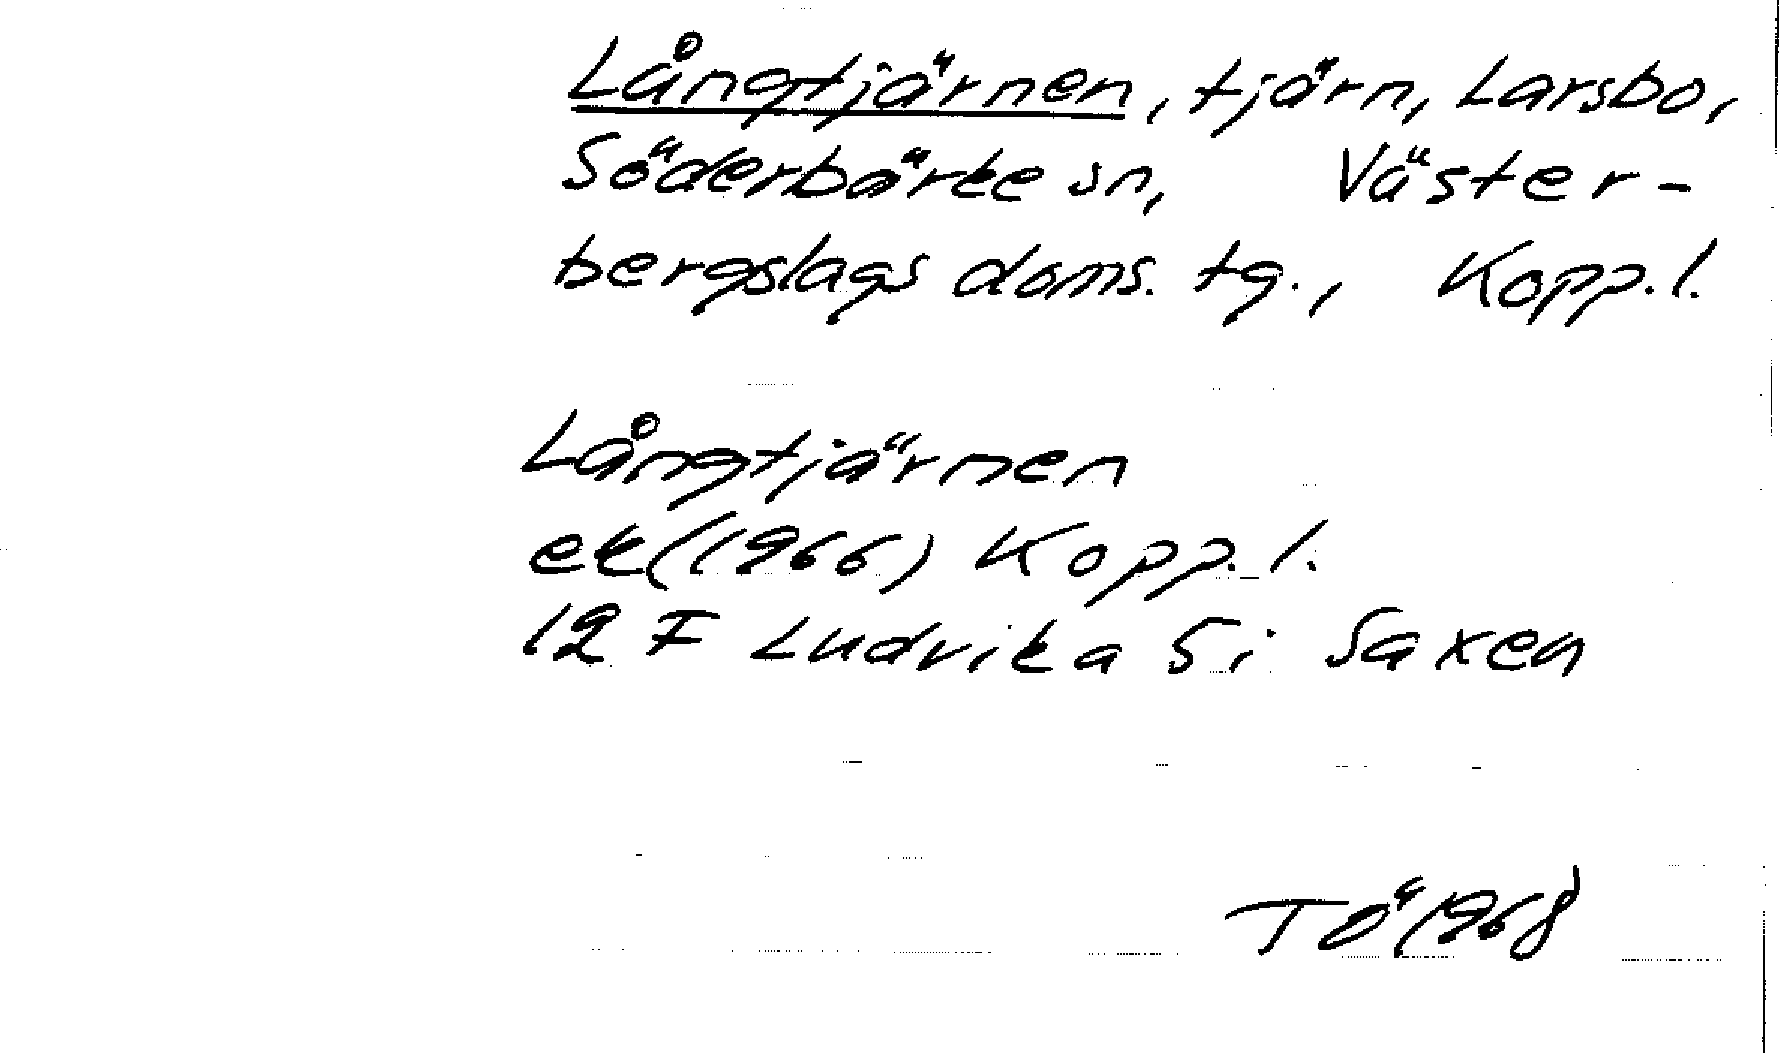 Långtjärnen, tjärn, Larsbo,
Söderbärke sn, Väster-
bergslags doms. tg., Kopp. l.
Långtjärnen
ek (1966) Kopp. l.
12 F Ludvika 5 i Saxen
TÖ 1968